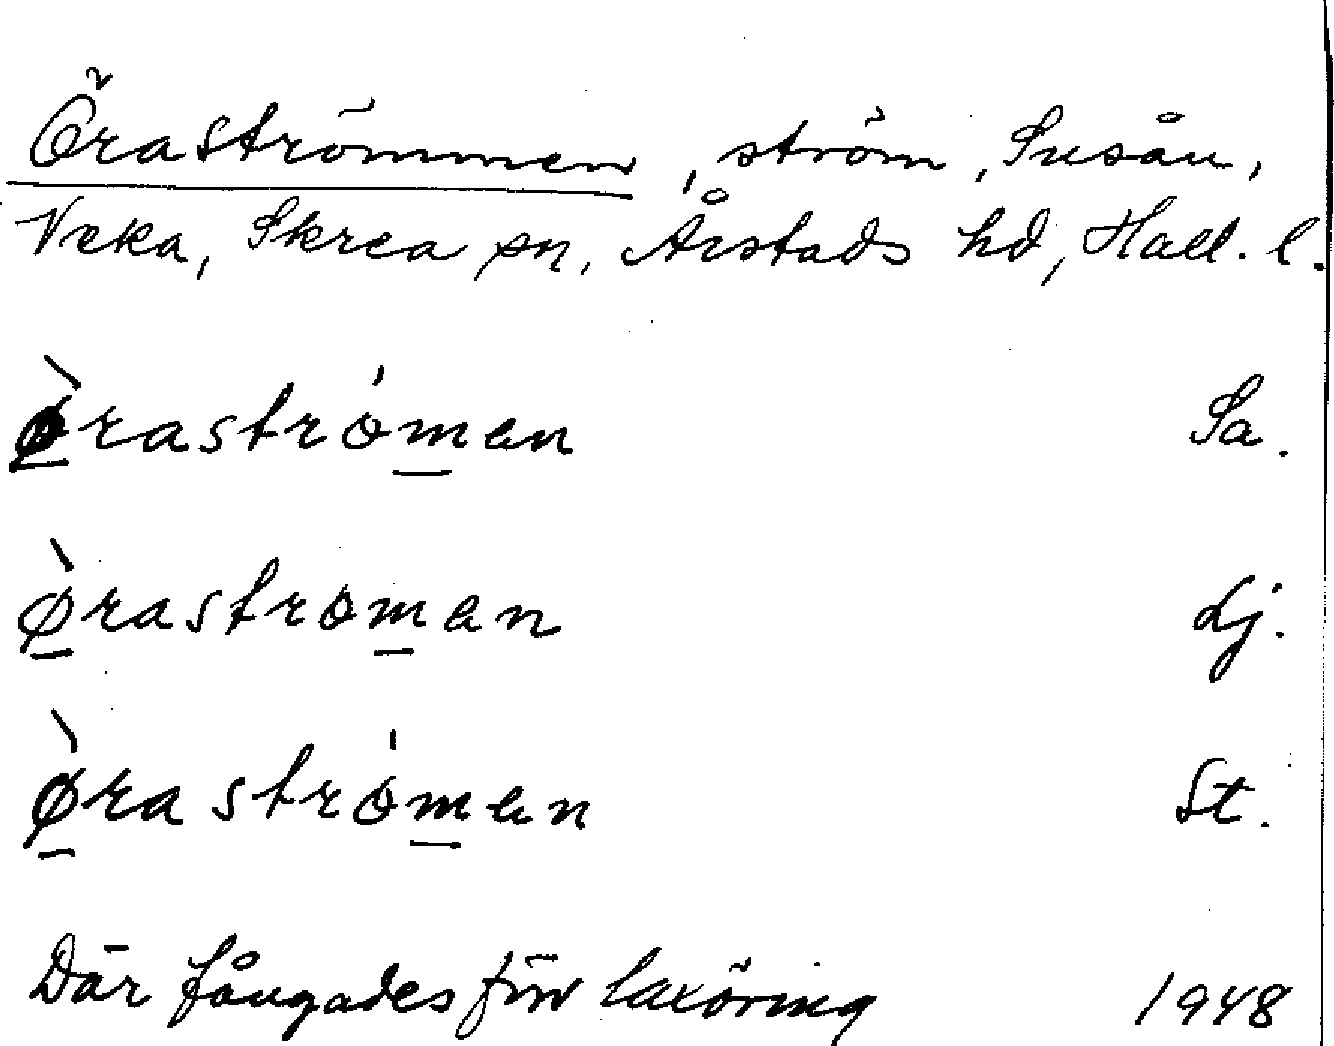 Öraströmmen, ström, Suseån,
Veka, Skrea sn, Årstads hd, Hall. l.
ø̀raströ́man Sa.
ø̀raströman Lj.
ø̀raströ́man St.
Där fångades förr laxöring 1948